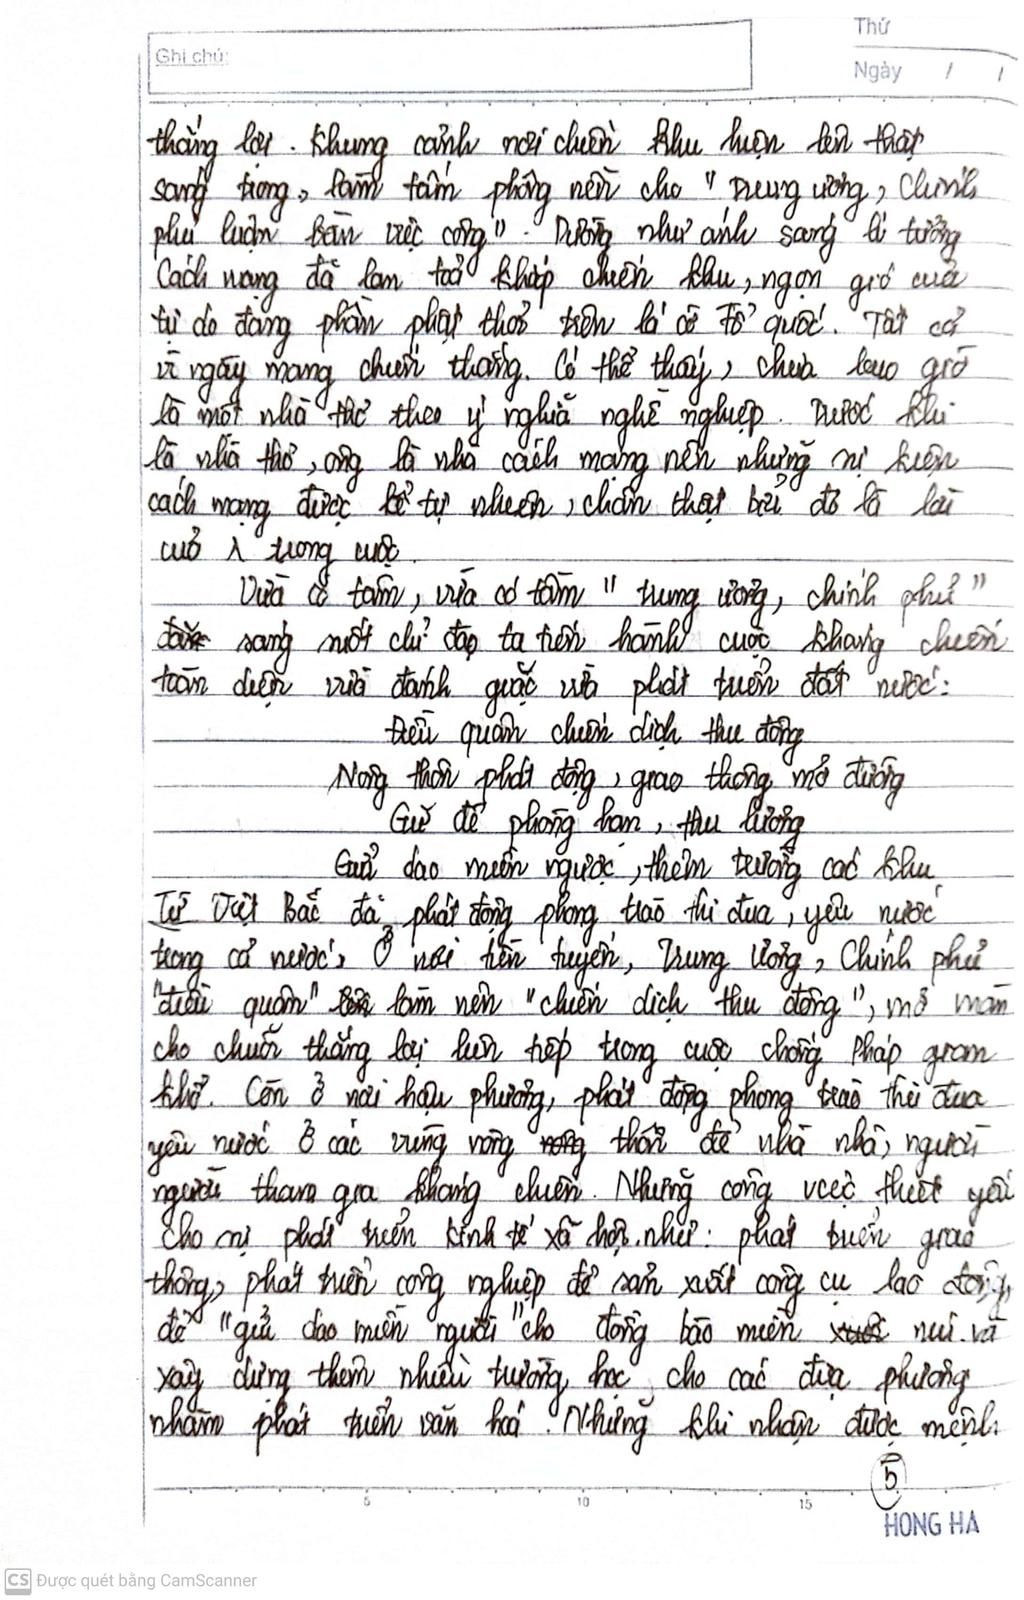 Ghi chú:
Thứ
Ngày / /
thắng lợi. Khung cảnh nơi chiến khu hiện lên thật
sang trọng, làm tấm phông nền cho "Trung ương, Chính
phủ luận bàn việc công". Dường như ánh sáng lí tưởng
Cách mạng đã lan toả khắp chiến khu, ngọn gió của
tự do đang phần phật thổi trên lá cờ Tổ quốc. Tất cả
vì ngày mang chiến thắng. Có thể thấy, chưa bao giờ
là một nhà thơ theo ý nghĩa nghề nghiệp. Trước khi
là nhà thơ, ông là nhà cách mạng nên những sự kiện
cách mạng được kể tự nhiên, chân thật bởi đó là lời
của 1 trong cuộc.
Vừa có tâm, vừa có tầm "trung ương, chính phủ"
sáng suốt chỉ đạo ta tiến hành cuộc kháng chiến
toàn diện vừa đánh giặc vừa phát triển đất nước:
Điều quân chiến dịch thu đông
Nông thôn phát động, giao thông mở đường
Giữ đê phòng hạn, thu lương
Gửi dao miền ngược, thêm trường các khu
Từ Việt Bắc đã phát động phong trào thi đua, yêu nước
trong cả nước, Ở nơi tiền tuyến, Trung Ương, Chính phủ
"điều quân" làm nên "chiến dịch thu đông", mở màn
cho chuỗi thắng lợi liên tiếp trong cuộc chống Pháp gian
khổ. Còn ở nơi hậu phương, phát động phong trào thi đua
yêu nước ở các vùng nông thôn để nhà nhà, người
người tham gia kháng chiến. Những công việc thiết yếu
cho sự phát triển kinh tế xã hội như: phát triển giao
thông, phát triển công nghiệp để sản xuất công cụ lao động,
để "gửi dao miền người" cho đồng bào miền núi và
xây dựng thêm nhiều trường học cho các địa phương
nhằm phát triển văn hoá. Nhưng khi nhận được mệnh
5
5 10 15
HONG HA
CS Được quét bằng CamScanner